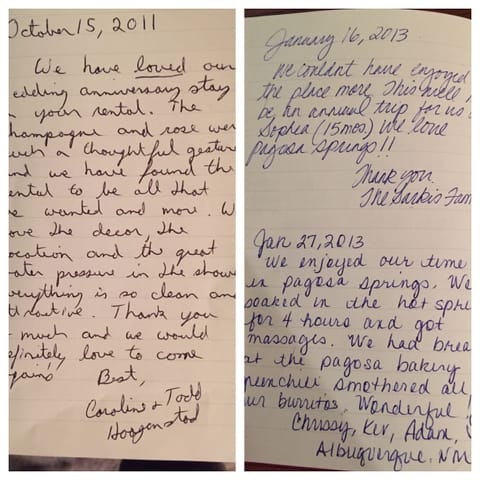 October 15, 2011
We have loved our
edding anniversary stay
your rental. The
hampagne and rose wer
uch a thoughtful gesture
nd we have found the
ental to be all that
e wanted and more. W
ove the decor, the
ocation and the great
ater pressure in the showe
erything is so clean and
ttractive. Thank you
much and we would
efinitely love to come
gain!
Best,
Caroline & Todd
January 16, 2013
We couldn't have enjoyed
the place more. This will
be an annual trip for us
Sophia (15mos) We love
pagosa springs!!
Thank you
The Sarkis Fam
Jan 27, 2013
We enjoyed our time
in pagosa springs. We
soaked in the hot spri
for 4 hours and got
massages. We had brea
at the pagosa bakery
reenchili smothered all
ur burritos. Wonderful!
Chrissy, Kev, Adam,
Albuquerque, NM